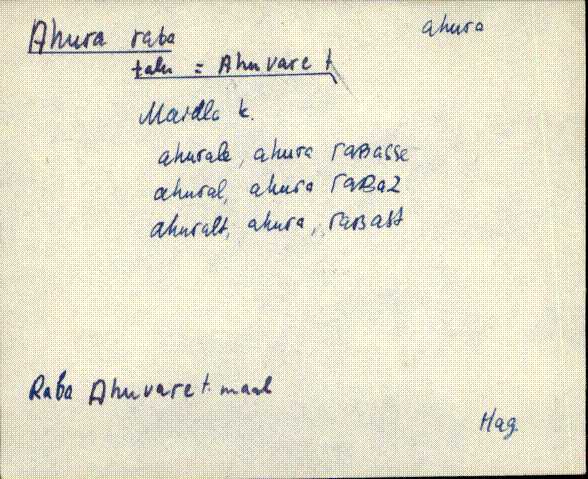 Ahura raba
ahura
talu = Ahuvare t
Maidla k.
ahurale, ahura raʙasse
ahural, ahura raʙaz
ahuralt, ahura, raʙast
Raba Ahuvare t. maal
Hag.